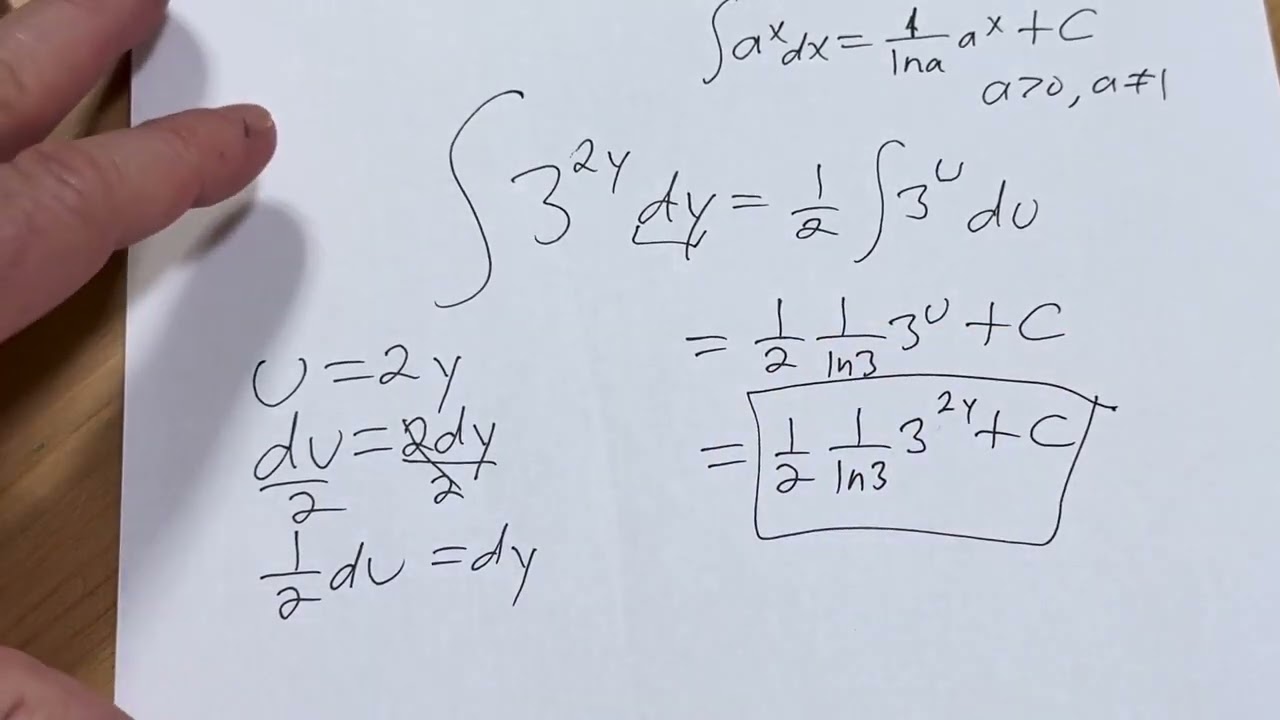 ∫aˣdx = 1/lna aˣ + C
a>0, a≠1
∫ 3^(2y) dy = 1/2 ∫ 3^u du
= 1/2 1/ln3 3^u + C
= 1/2 1/ln3 3^(2y) + C
u = 2y
du/2 = 2dy/2
1/2 du = dy